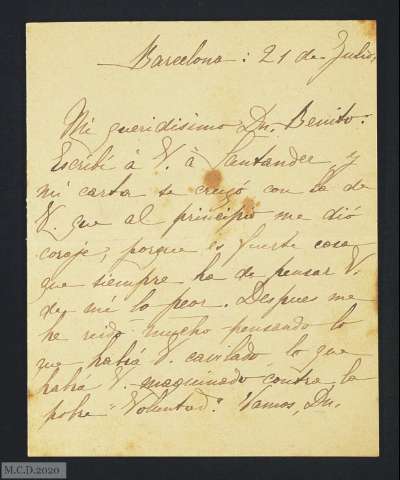 Barcelona: 21 de Julio,
Mi queridisimo Dn. Benito:
Escribí á V. á Santander, y
mi carta se cruzó con la de
V. que al principio me dió
coraje, porque es fuerte cosa
que siempre ha de pensar V.
de mí lo peor. Despues me
he reido mucho pensando lo
que habrá V. cavilado, lo que
habrá V. maquinado contra la
pobre "Voluntad". Vamos, Dn.
M.C.D.2020